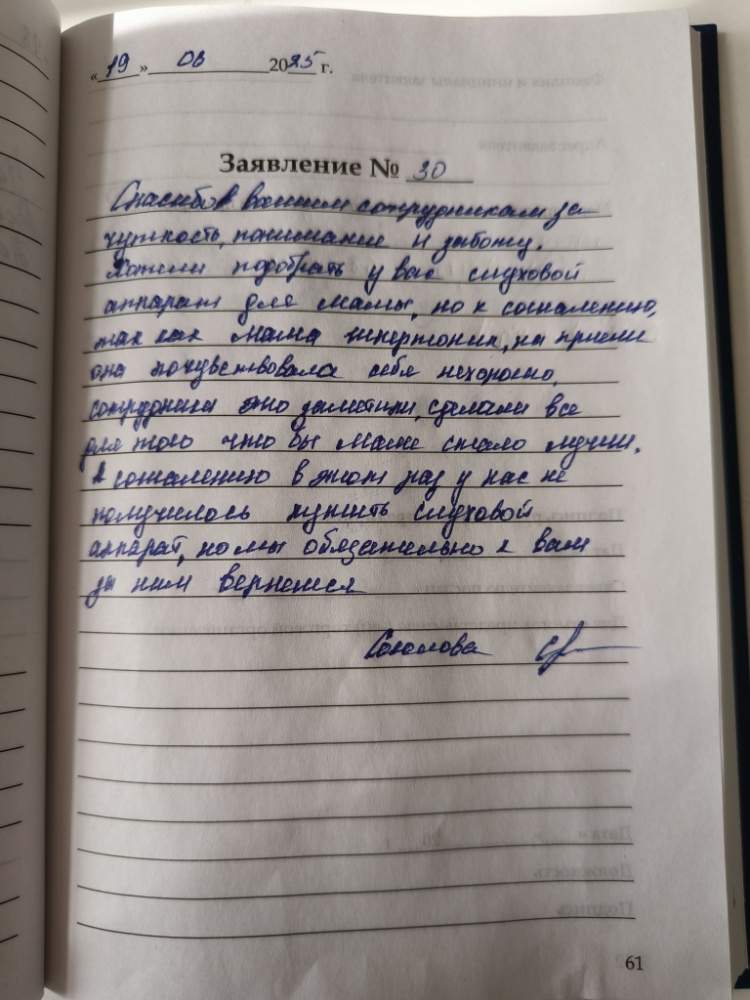 «19» 08 2025 г.
Заявление № 30
Спасибо вашим сотрудникам за
чуткость, понимание и заботу.
Хотели подобрать у вас слуховой
аппарат для мамы, но к сожалению,
так как мама гипертоник, на приеме
она почувствовала себя нехорошо,
сотрудники это заметили, сделали все
для того что бы маме стало лучше.
К сожалению в этот раз у нас не
получилось купить слуховой
аппарат, но мы обязательно к вам
за ним вернемся
Соколова
61